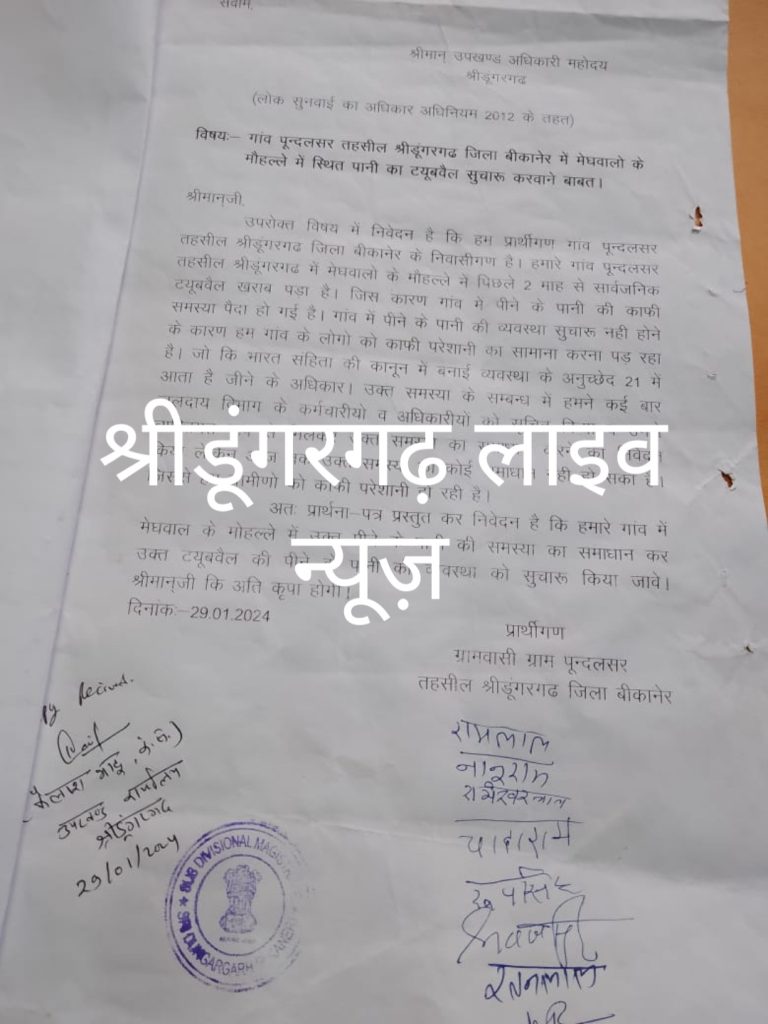 सेवामें,
श्रीमान् उपखण्ड अधिकारी महोदय
श्रीडूंगरगढ
(लोक सुनवाई का अधिकार अधिनियम 2012 के तहत)
विषयः– गांव पून्दलसर तहसील श्रीडूंगरगढ जिला बीकानेर में मेघवालो के
मौहल्ले में स्थित पानी का टयूबवैल सुचारू करवाने बाबत।
श्रीमान्जी,
उपरोक्त विषय में निवेदन है कि हम प्रार्थीगण गांव पून्दलसर
तहसील श्रीडूंगरगढ जिला बीकानेर के निवासीगण है। हमारे गांव पून्दलसर
तहसील श्रीडूंगरगढ में मेघवालो के मौहल्ले में पिछले 2 माह से सार्वजनिक
टयूबवैल खराब पड़ा है। जिस कारण गांव मे पीने के पानी की काफी
समस्या पैदा हो गई है। गांव में पीने के पानी की व्यवस्था सुचारू नही होने
के कारण हम गांव के लोगो को काफी परेशानी का सामाना करना पड़ रहा
है। जो कि भारत सहिता की कानून मे बनाई व्यवस्था के अनुच्छेद 21 में
आता है जीने के अधिकार। उक्त समस्या के सम्बन्ध में हमने कई बार
जलदाय विभाग के कर्मचारीयो व अधिकारीयों को
उक्त समस्या का निवेदन
कोई समाधान नही हो सका है।
काफी परेशानी हो रही है।
श्रीडूंगरगढ़ लाइव
न्यूज़
अतः प्रार्थना–पत्र प्रस्तुत कर निवेदन है कि हमारे गांव में
मेघवाल के मोहल्ले में उक्त पीने के पानी की समस्या का समाधान कर
उक्त टयूबवैल की पीने के पानी की व्यवस्था को सुचारू किया जावे।
श्रीमान्जी कि अति कृपा होगी।
दिनांकः–29.01.2024
प्रार्थीगण
ग्रामवासी ग्राम पून्दलसर
तहसील श्रीडूंगरगढ जिला बीकानेर
Recived.
उपखण्ड कार्यालय
श्रीडूंगरगढ
29/01/2024
SUB DIVISIONAL MAGIS
SRI DUNGARGARH
रामलाल
नानुराम
रामेश्वरलाल